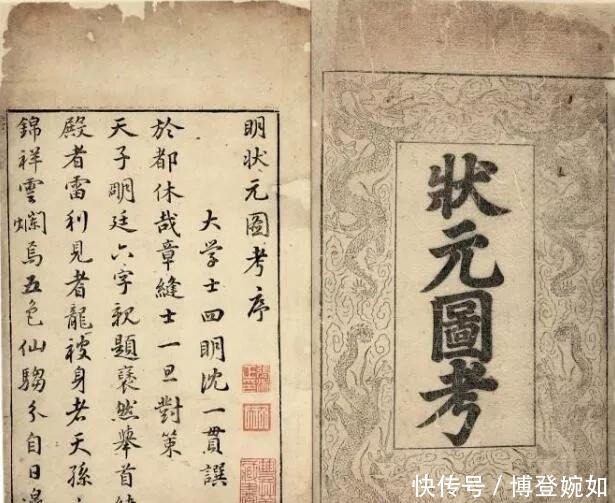 狀元圖考
明狀元圖考序
大学士四明沈一貫譔
於都休哉章縫士一旦對策
天子明廷六字親題裒然舉首
殿者雷利見者龍被身者天孫
錦祥雲爛焉五色仙騶分自日邊
快传号/博登婉如